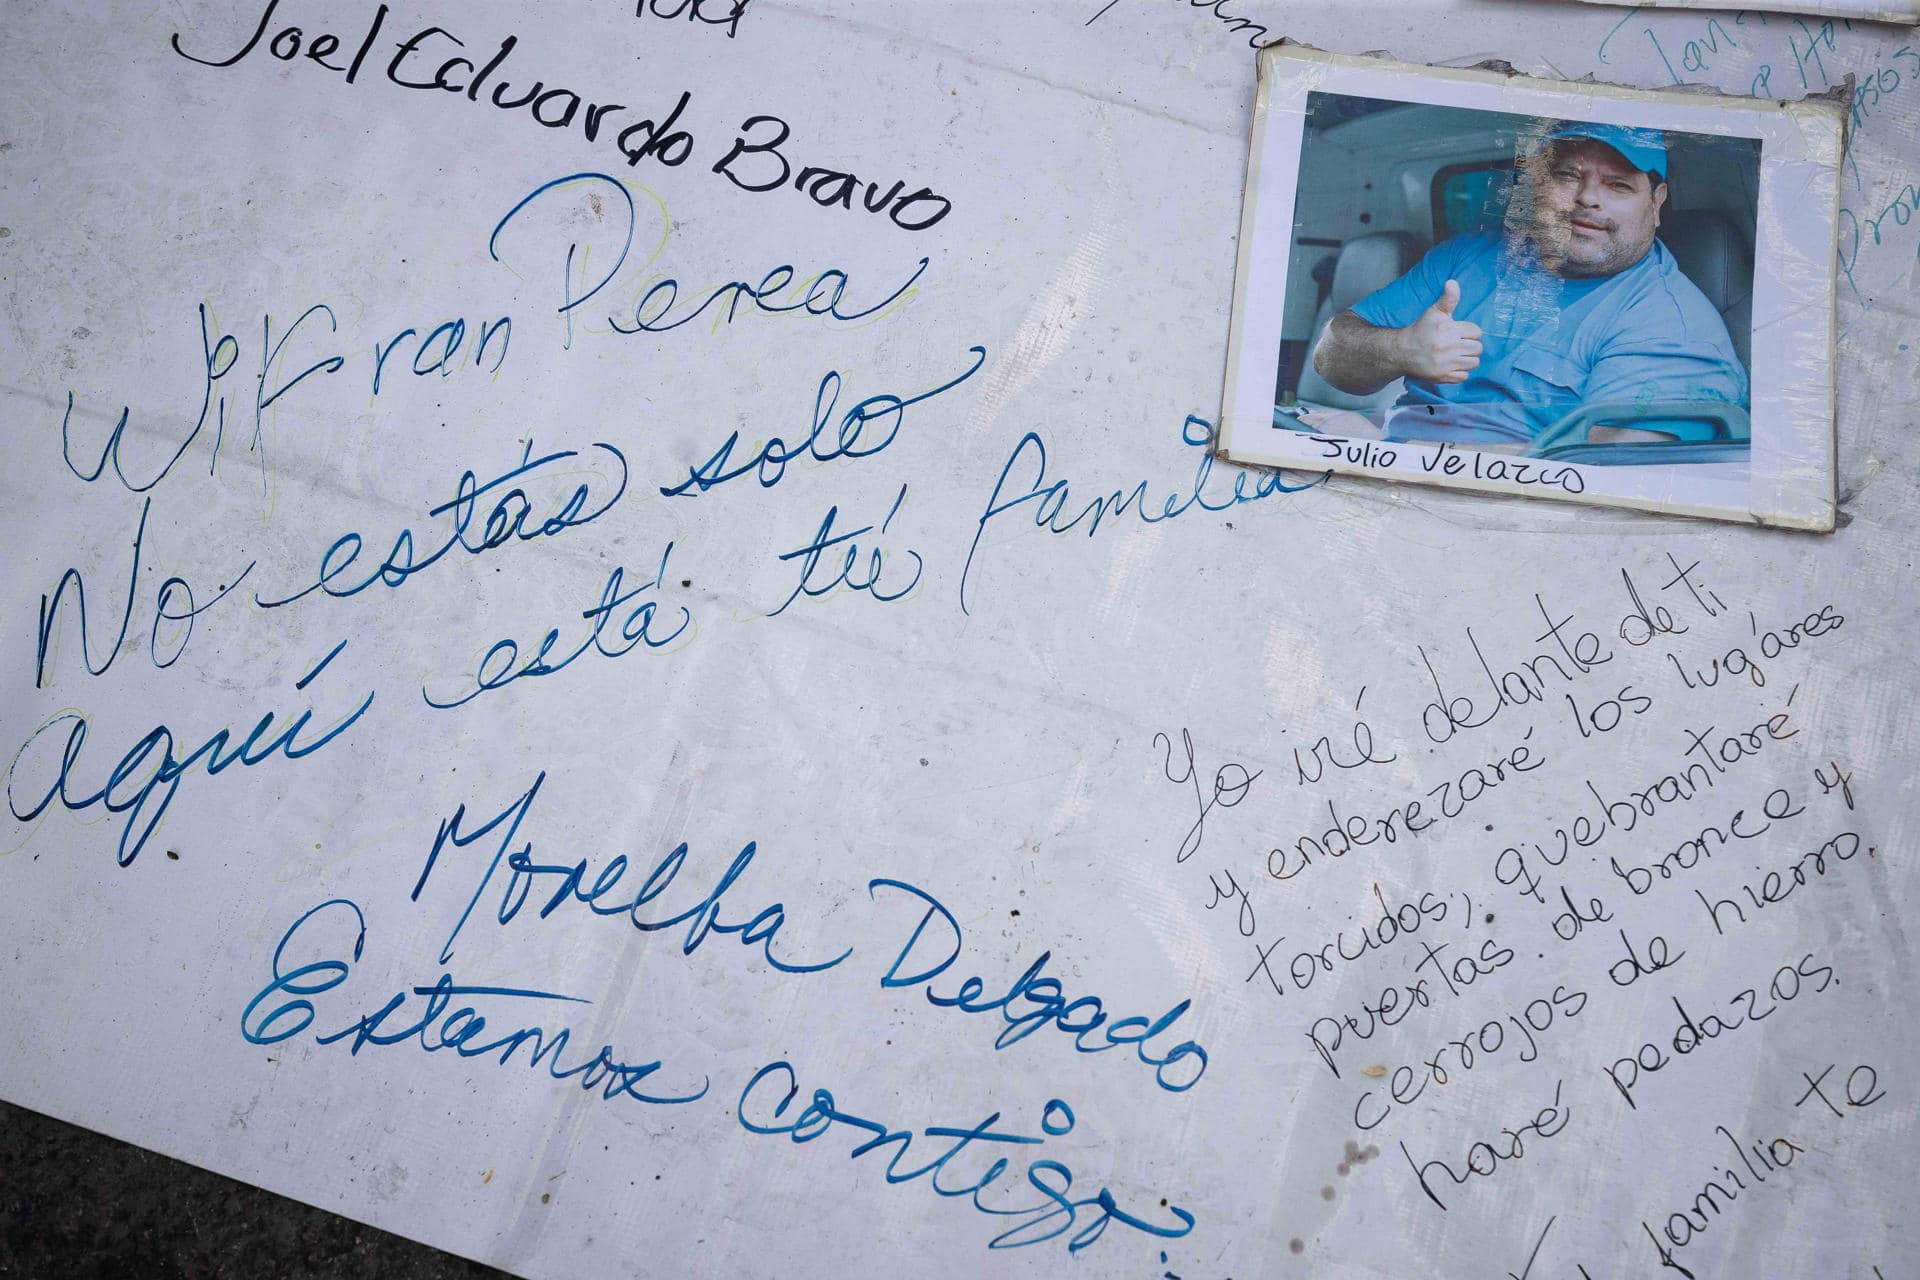 Joel Eduardo Bravo
Wifran Perea
No estás solo
aquí está tú familia
Julio Velazco
Morelba Delgado
Estamos contigo.
Yo iré delante de ti
y enderezaré los lugáres
torcidos; quebrantaré
puertas de bronce y
cerrojos de hierro
haré pedazos.
familia te